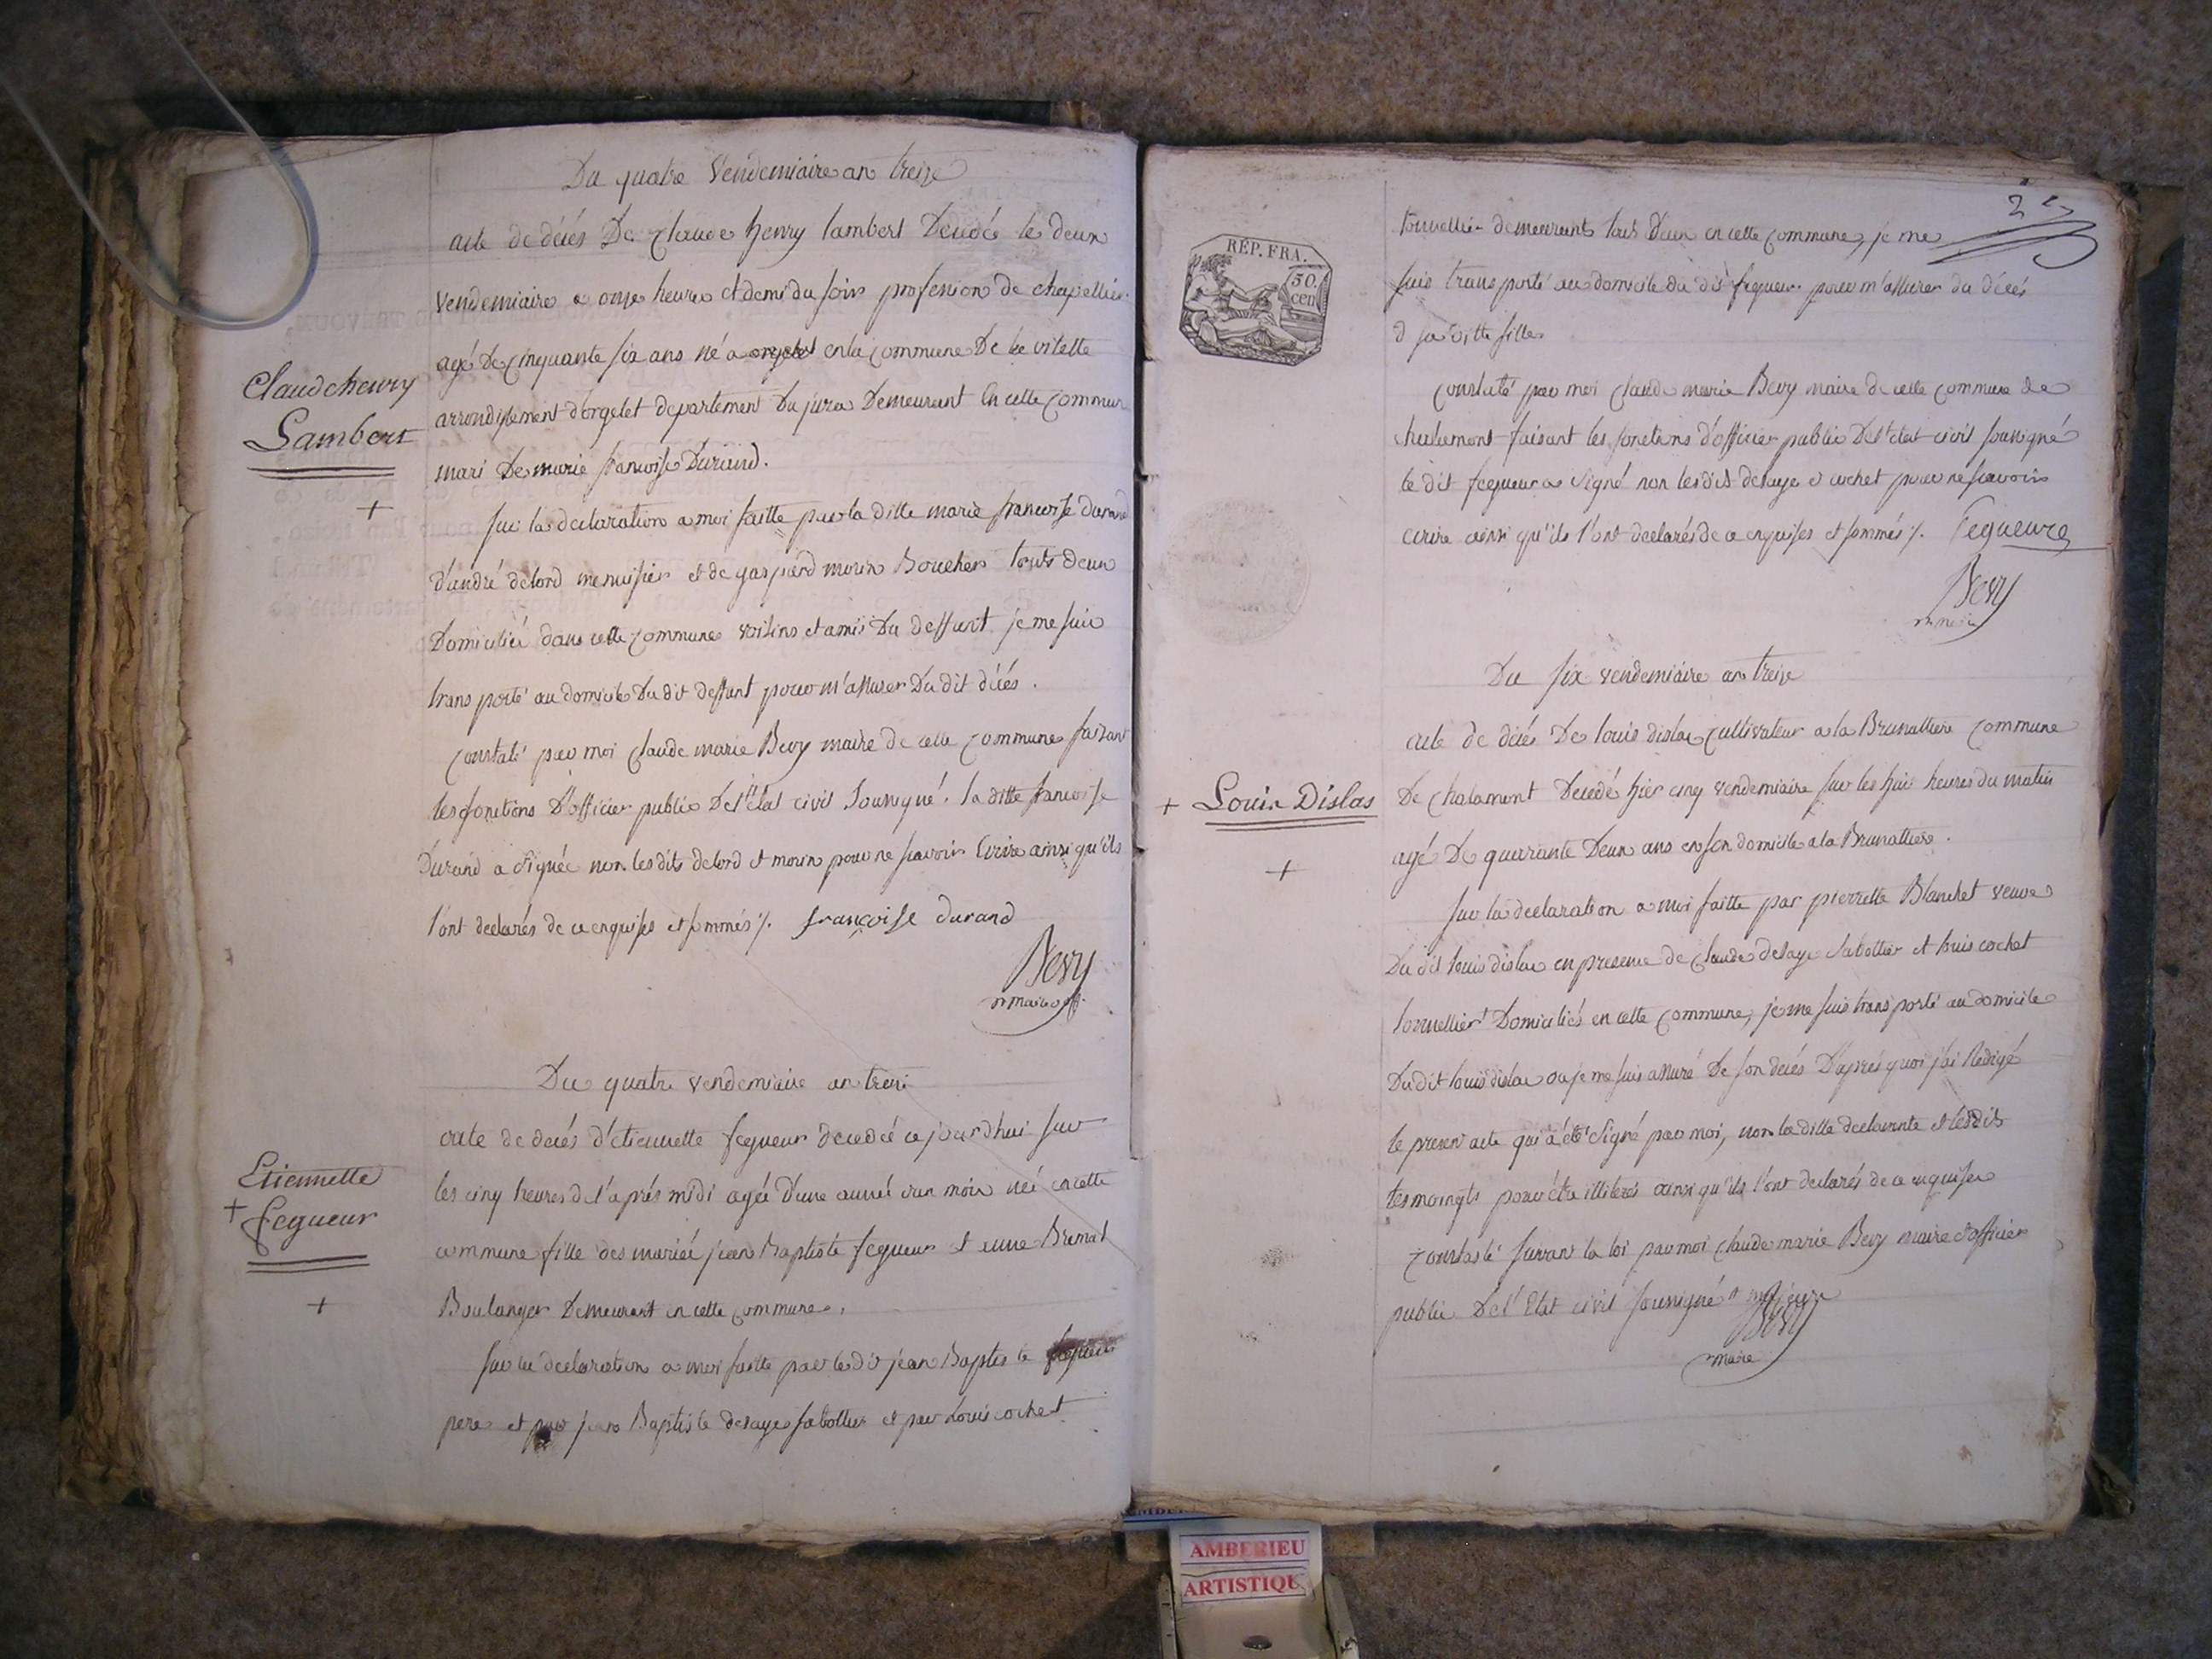 Du quatre Vendemiaire an treize
acte de décés De Claude henry lambert Decedé le deux
vendemiaire a onze heures et demi du soir profession de chapellier
agé De Cinquante six ans né a en la Commune De la vilette
arrondissement d'orgelet departement Du jura Demeurant En cette Commune
mari De marie françoise Durand.
Claude henry
Lambert
+
sur la declaration a moi faitte par la ditte marie francoise durand
d'andré delord menuisier et de gaspard morin Boucher touts deux
Domiciliés dans cette Commune voisins et amis Du deffunt je me suis
transporté au domicile Du dit deffunt pour m'assurer Du dit décés.
Constaté par moi Claude marie Bevy maire de cette Commune faisant
les fonctions D'officier public De l'état civil soussigné. la ditte francoise
Durand a signée non les dits delord et morin pour ne scavoir Ecrire ainsi qu'ils
l'ont declarés de ce enquises et sommés /. françoise durand
Bevy
maire
Du quatre vendemiaire an treize
acte de décés d'etiennette fegueur decedée ce jourd'hui sur
les cinq heures de l'après midi agée d'une année un mois née en cette
commune fille des mariés jean Baptiste fegueur et Brunat
Boulanger Demeurant en cette Commune.
Etiennette
+ fegueur
+
sur la declaration a moi faitte par le dit jean Baptiste fegueur
pere et par jean Baptiste desaye sabottier et par Louis cochet
RÉP. FRA.
50.
cen
tonnellier demeurants touts Deux en cette Commune, je me
suis transporté au domicile du dit fegueur pour m'assurer du décés
d sa ditte fille.
Constaté par moi Claude marie Bevy maire de cette Commune de
chalamont faisant les fonctions d'officier public De l'etat civil soussigné
le dit fegueur a signé non les dits desaye et cochet pour ne scavoir
ecrire ainsi qu'ils l'ont declarés de ce enquises et sommés /. Fegueure
Bevy
maire
Du six vendemiaire an treize
acte de décés De louis dislas Cultivateur a la Brunattiere Commune
De Chalamont Decedé hier cinq vendemiaire sur les huit heures du matin
agé De quarante Deux ans en son domicile a la Brunattiere.
+ Louis Dislas
+
sur la declaration a moi faitte par pierrette Blanchet veuve
Du dit louis dislas en presence de Claude desaye sabottier et louis cochet
tonnellier Domiciliés en cette Commune, je me suis transporté au domicile
Du dit louis dislas ou je me suis assuré De son décés D'aprés quoi j'ai Redigé
le present acte qui a été signé par moi, non la ditte declarante et les dits
tesmoingts pour être illiterés ainsi qu'ils l'ont declarés de ce enquises
Constaté suivant la loi par moi Claude marie Bevy maire et officier
public De l'Etat civil soussigné
Bevy
maire
AMBERIEU
ARTISTIQU